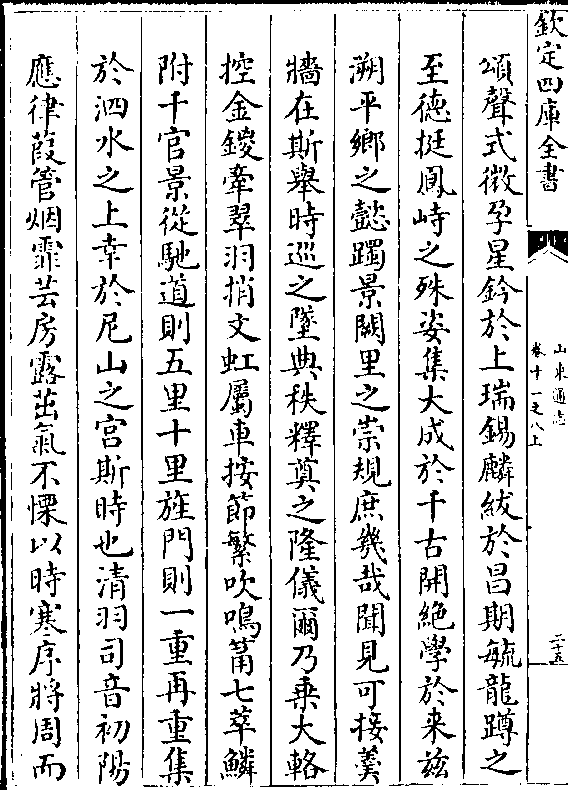 欽定四庫全書
山東通志
卷十一之八上
二十五
頌聲式微孕星鈐於上瑞錫麟紱於昌期毓龍蹲之
至德挺鳳峙之殊姿集大成於千古開絶學於来兹
溯平鄉之懿躅景闕里之崇規庶幾哉聞見可接羮
牆在斯舉時巡之墜典秩釋奠之隆儀爾乃乗大輅
控金鍐牽翠羽捎文虹屬車按節繁吹鳴莆七萃鱗
附千官景從馳道則五里十里旌門則一重再重集
於泗水之上幸於尼山之宫斯時也清羽司音初陽
應律葭管烟霏芸房露茁氣不慄以時寒序將周而